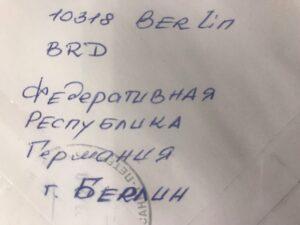 10318 BERLin
BRD
ФЕДЕРАТИВНАЯ
РЕСПУБЛИКА
ГЕРМАНИЯ
г. БЕРЛИН